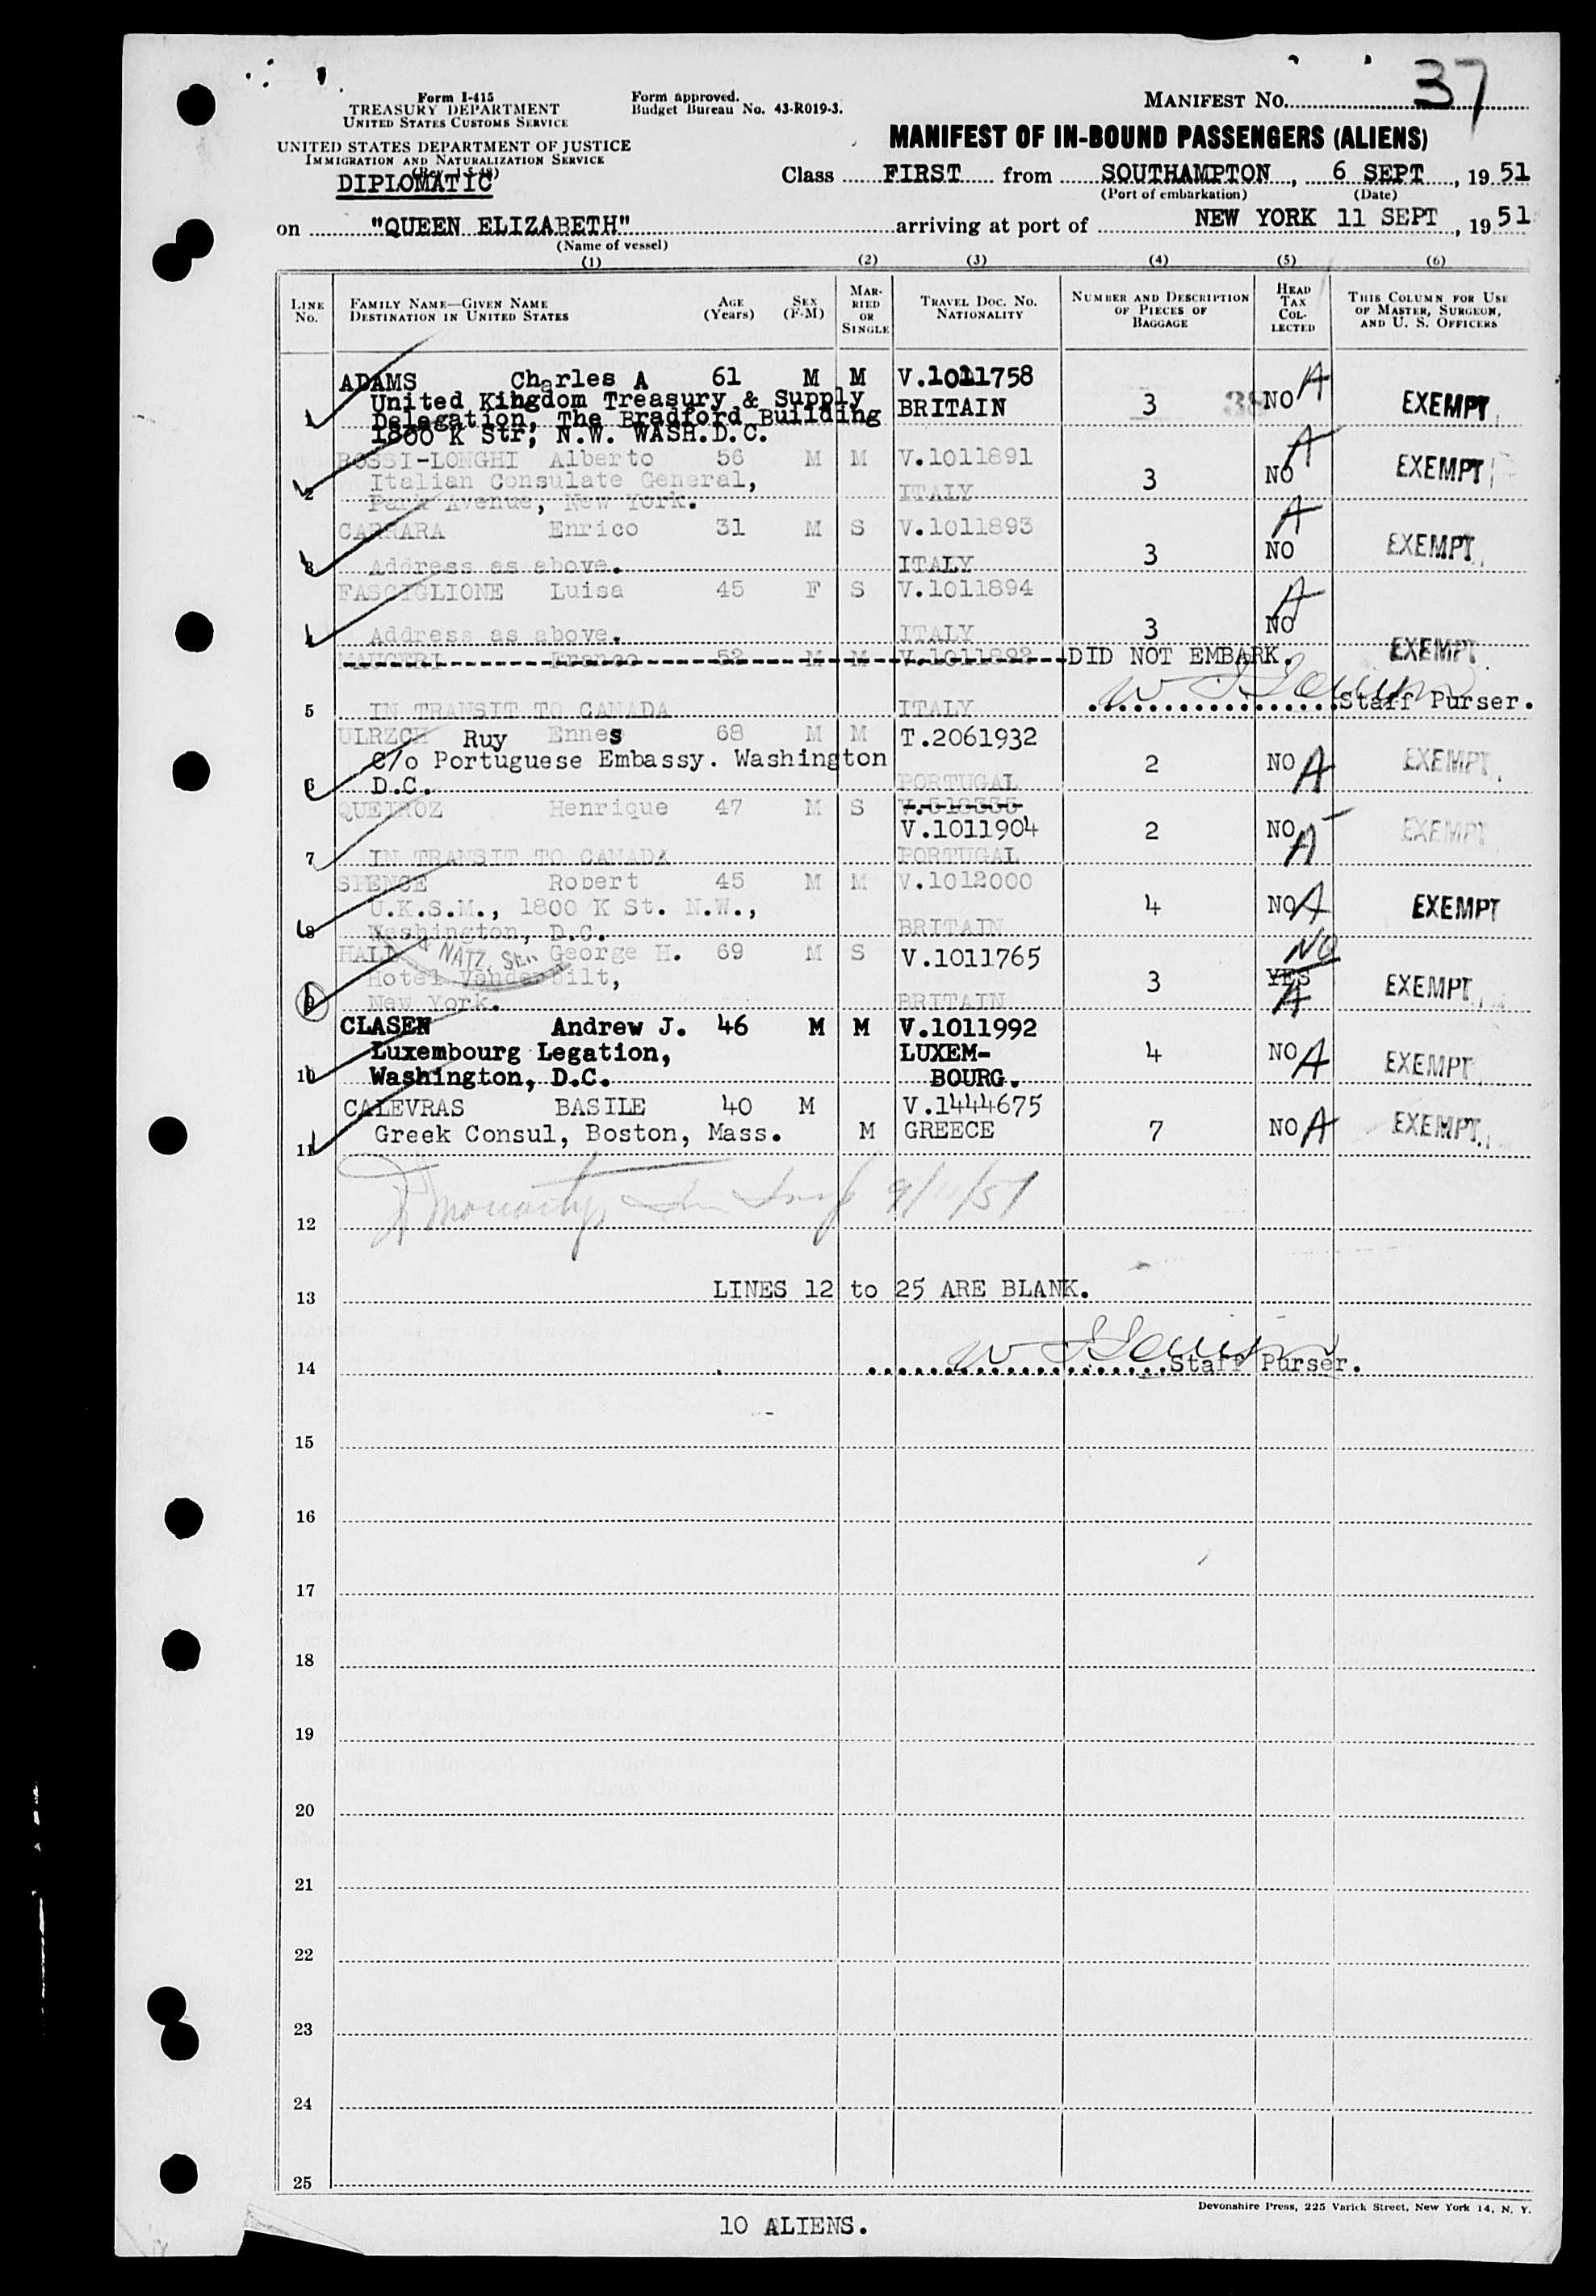 37
Form I-415
TREASURY DEPARTMENT
UNITED STATES CUSTOMS SERVICE
Form approved.
Budget Bureau No. 43-R019-3.
MANIFEST No.
UNITED STATES DEPARTMENT OF JUSTICE
IMMIGRATION AND NATURALIZATION SERVICE
DIPLOMATIC
MANIFEST OF IN-BOUND PASSENGERS (ALIENS)
Class FIRST from SOUTHAMPTON, 6 SEPT, 19 51
(Port of embarkation) (Date)
on "QUEEN ELIZABETH" arriving at port of NEW YORK 11 SEPT, 19 51
(Name of vessel)
(1) (2) (3) (4) (5) (6)
LINE No. FAMILY NAME—GIVEN NAME DESTINATION IN UNITED STATES AGE (Years) SEX (F-M) MARRIED OR SINGLE TRAVEL DOC. No. NATIONALITY NUMBER AND DESCRIPTION OF PIECES OF BAGGAGE HEAD TAX COLLECTED THIS COLUMN FOR USE OF MASTER, SURGEON, AND U. S. OFFICERS
ADAMS Charles A 61 M M V.1011758
United Kingdom Treasury & Supply BRITAIN 3 38 NO A EXEMPT
1 Delegation, The Bradford Building
1800 K Str, N.W. WASH.D.C.
ROSSI-LONGHI Alberto 56 M M V.1011891 A
Italian Consulate General, 3 NO EXEMPT
2 Park Avenue, New York. ITALY
CARRARA Enrico 31 M S V.1011893 A
3 Address as above. ITALY 3 NO EXEMPT
FASCIGLIONE Luisa 45 F S V.1011894 A
4 Address as above. ITALY 3 NO EXEMPT
MAUCERI Franco 52 M M V.1011892 DID NOT EMBARK.
5 IN TRANSIT TO CANADA ITALY Staff Purser.
ULRZCH Ruy Ennes 68 M M T.2061932
C/o Portuguese Embassy. Washington 2 NO A EXEMPT
6 D.C. PORTUGAL
QUEIROZ Henrique 47 M S V.518335
V.1011904 2 NO A EXEMPT
7 IN TRANSIT TO CANADA PORTUGAL
SPENCE Robert 45 M M V.1012000
U.K.S.M., 1800 K St. N.W., 4 NO A EXEMPT
8 Washington, D.C. BRITAIN
NATZ. SER
HALL George H. 69 M S V.1011765 NO
Hotel Vanderbilt, 3 YES A EXEMPT
9 New York. BRITAIN
CLASEN Andrew J. 46 M M V.1011992
Luxembourg Legation, LUXEM- 4 NO A EXEMPT
10 Washington, D.C. BOURG.
CALEVRAS BASILE 40 M V.1444675
Greek Consul, Boston, Mass. M GREECE 7 NO A EXEMPT
11
9/11/51
12
LINES 12 to 25 ARE BLANK.
13
14 Staff Purser.
15
16
17
18
19
20
21
22
23
24
25
Devonshire Press, 225 Varick Street, New York 14, N. Y.
10 ALIENS.